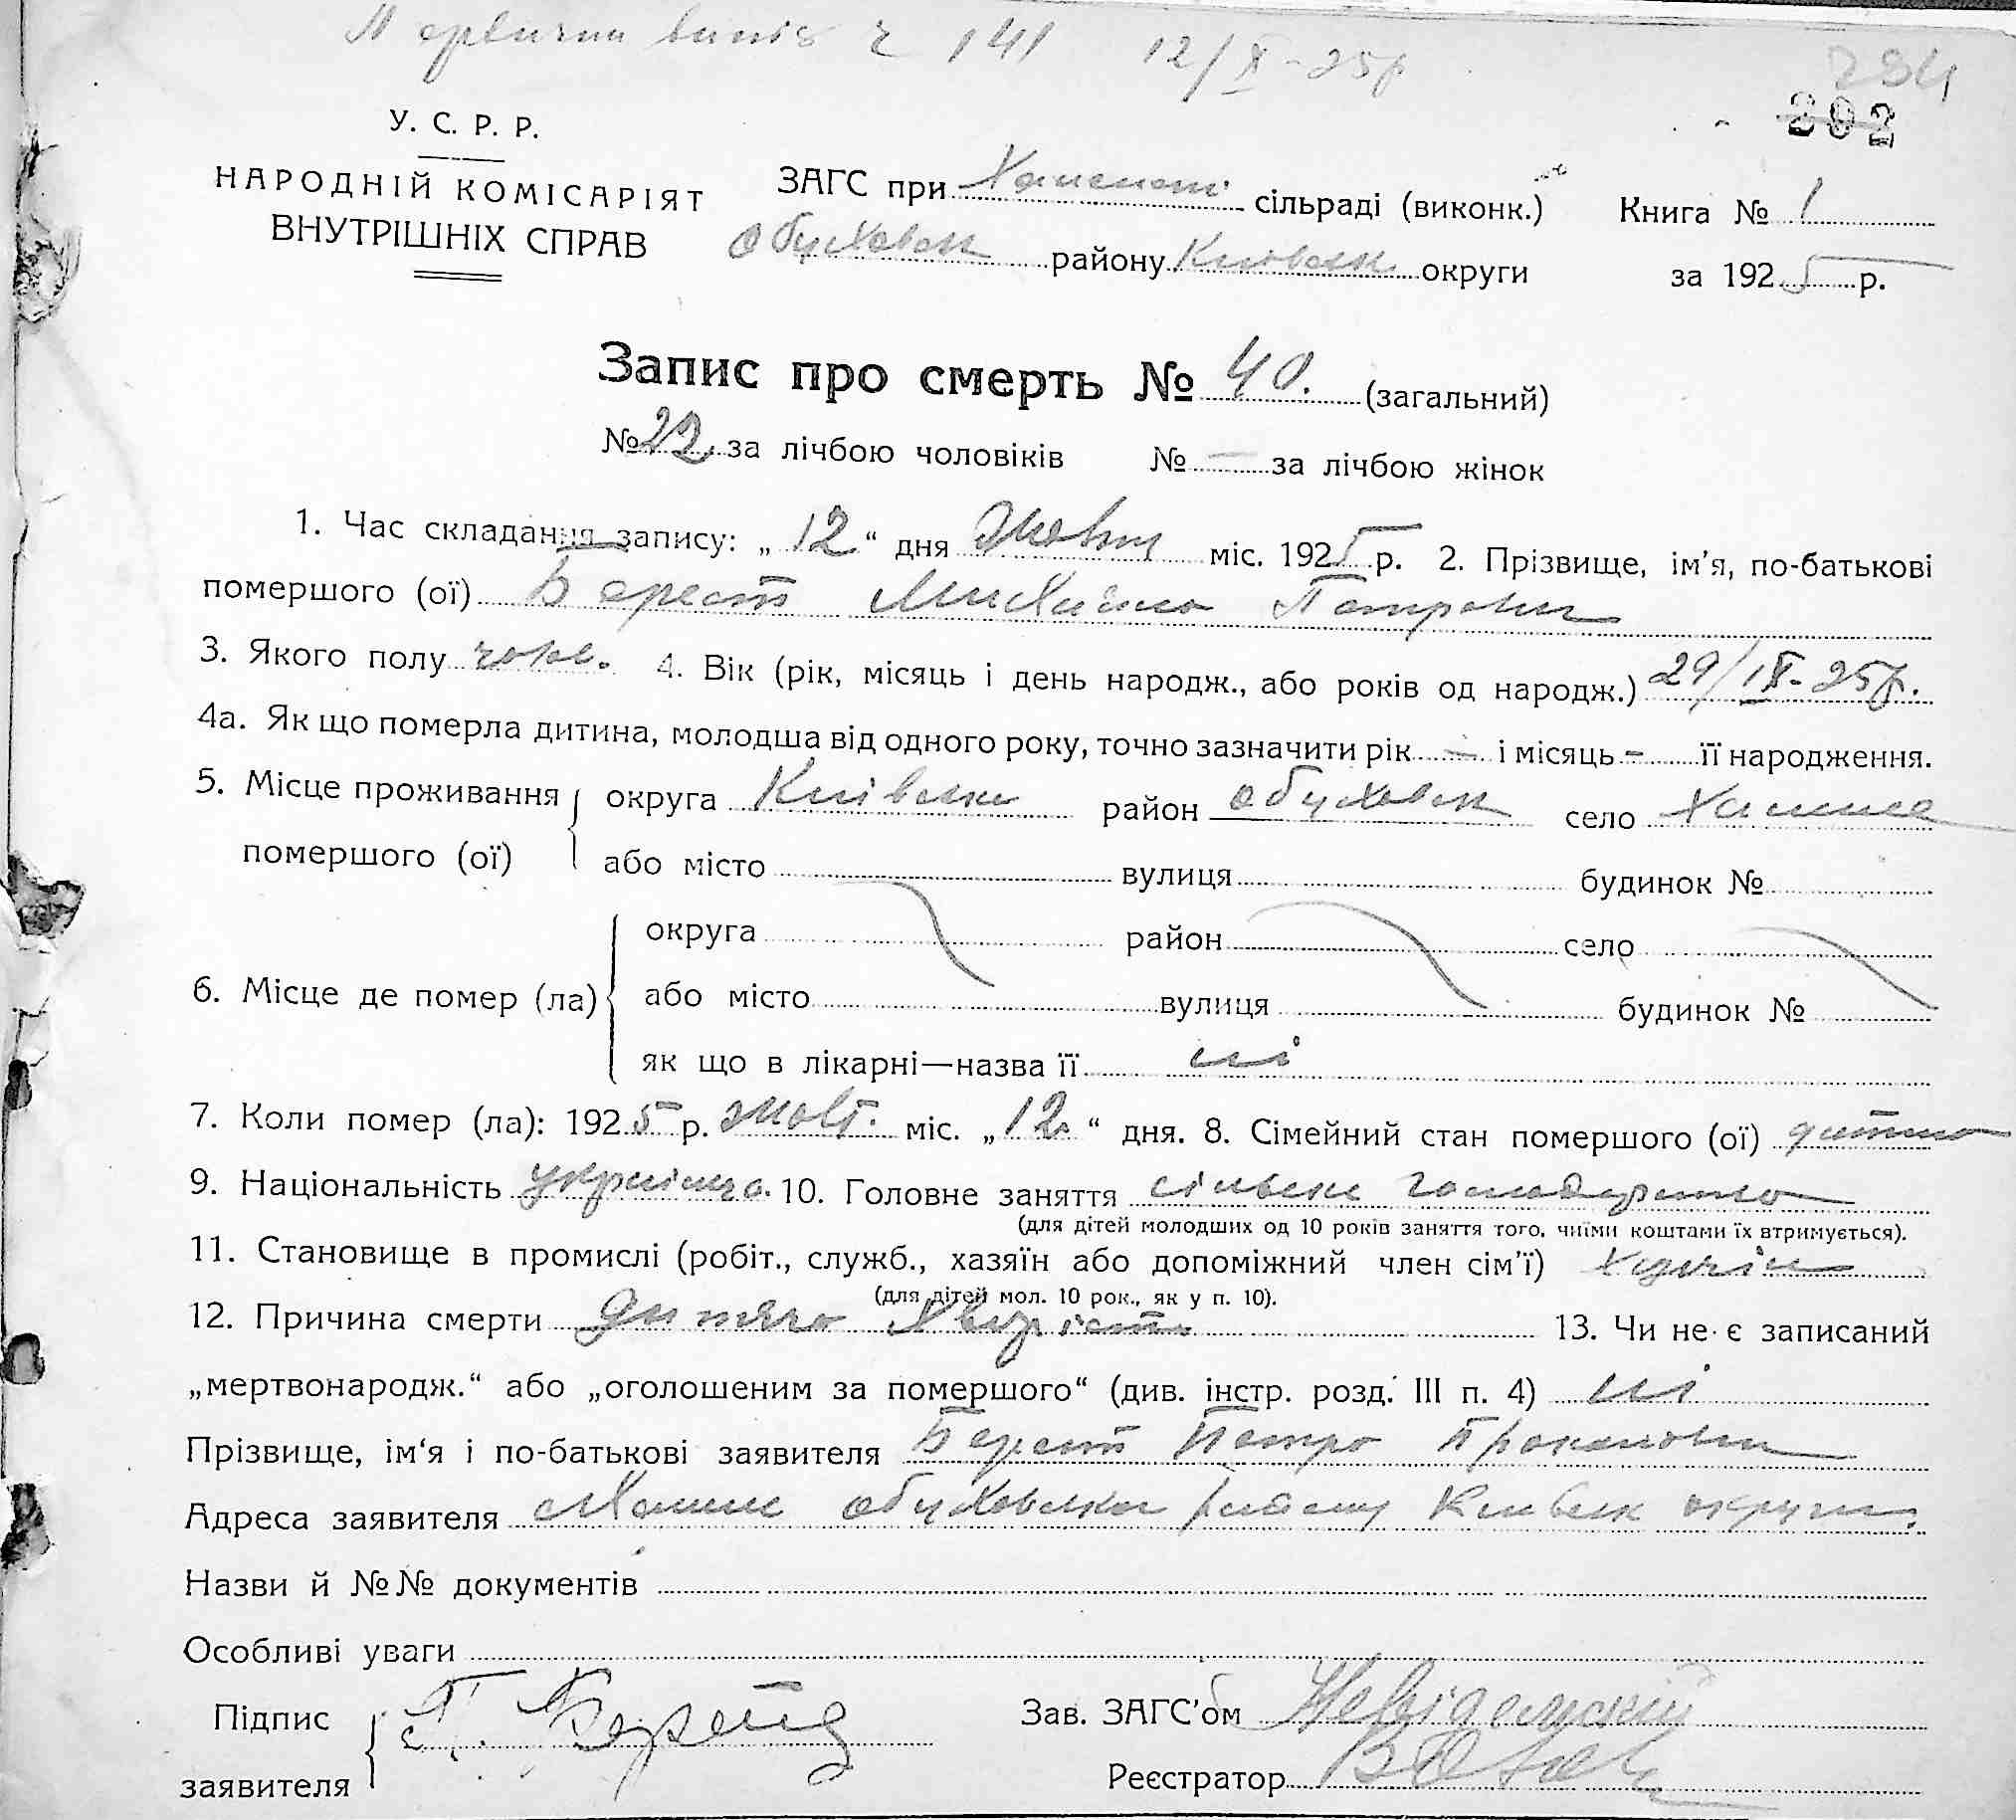 Первична випис ч 141 12/X-25р
294
202
У. С. Р. Р.
НАРОДНІЙ КОМІСАРІЯТ
ВНУТРІШНІХ СПРАВ
ЗАГС при сільраді (виконк.) Книга № 1
Обуховськ району Київськ округи за 1925 р.
Запис про смерть № 40. (загальний)
№ 22 за лічбою чоловіків № — за лічбою жінок
1. Час складання запису: „12“ дня Жовтн міс. 1925 р. 2. Прізвище, ім’я, по-батькові
помершого (ої) Берест Михайло Петрович
3. Якого полу чолов. 4. Вік (рік, місяць і день народж., або років од народж.) 29/IX-25р.
4а. Як що померла дитина, молодша від одного року, точно зазначити рік — і місяць — її народження.
5. Місце проживання округа Київська район Обуховськ село
помершого (ої) або місто вулиця будинок №
округа район село
6. Місце де помер (ла) або місто вулиця будинок №
як що в лікарні—назва її ні
7. Коли помер (ла): 1925 р. жовт. міс. „12“ дня. 8. Сімейний стан помершого (ої) дитина
9. Національність 10. Головне заняття сільське господарство
(для дітей молодших од 10 років заняття того, чиїми коштами їх втримується).
11. Становище в промислі (робіт., служб., хазяїн або допоміжний член сім’ї) хазяїн
(для дітей мол. 10 рок., як у п. 10).
12. Причина смерти дитяча хворість 13. Чи не є записаний
„мертвонародж.“ або „оголошеним за помершого“ (див. інстр. розд. III п. 4) ні
Прізвище, ім‘я і по-батькові заявителя Берест Петро Прокопович
Адреса заявителя Обуховського району Київськ округи.
Назви й №№ документів
Особливі уваги
Підпис П. Берест Зав. ЗАГС’ом
заявителя Реєстратор